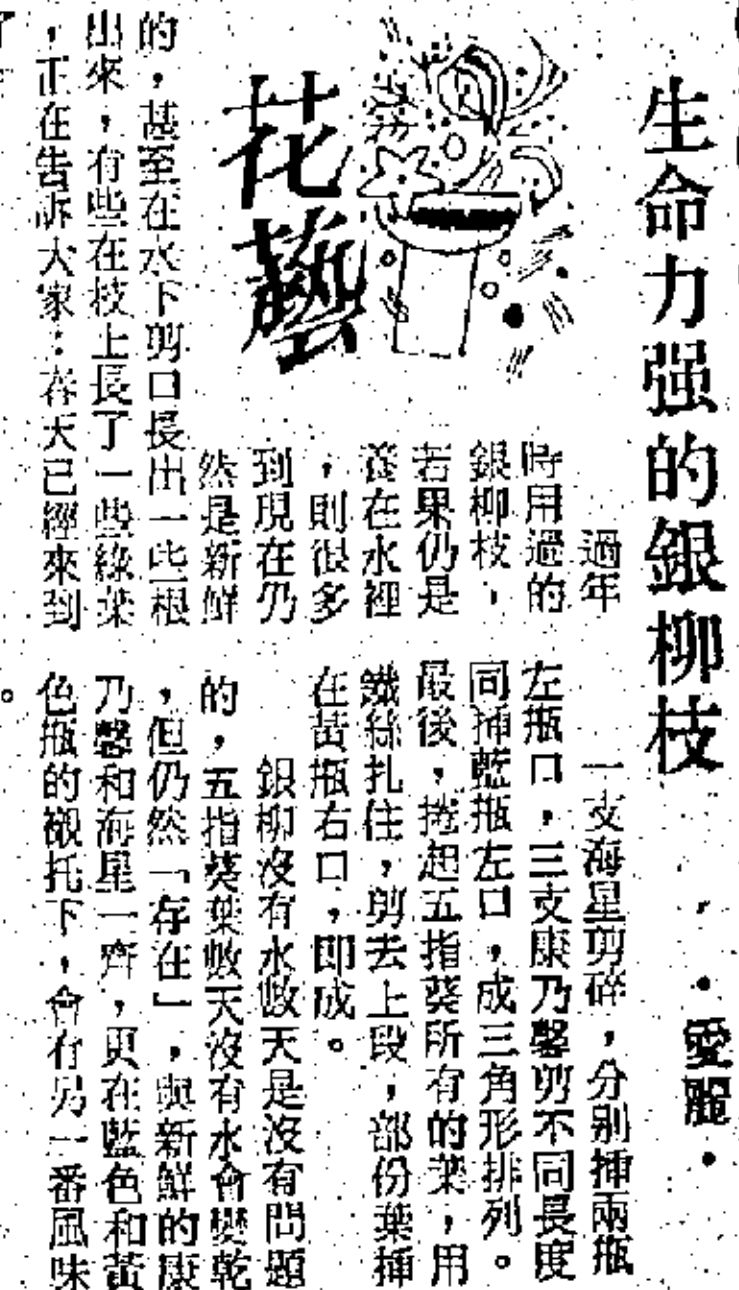 生命力强的銀柳枝
·愛麗·
花藝
過年
時用過的
銀柳枝，
若果仍是
養在水裡
，則很多
到現在仍
然是新鮮
的，甚至在水下剪口長出一些根
出來，有些在枝上長了一些綠葉
，正在告訴大家：春天已經來到
了
一支海星剪碎，分别揷兩瓶
左瓶口，三支康乃馨剪不同長度
同揷藍瓶左口，成三角形排列。
最後，捲起五指葵所有的葉，用
鐵絲扎住，剪去上段，部份葉揷
在黃瓶右口，即成。
銀柳沒有水數天是沒有問題
的，五指葵葉數天沒有水會變乾
，但仍然「存在」，與新鮮的康
乃馨和海星一齊，更在藍色和黃
色瓶的襯托下，會有另一番風味
。